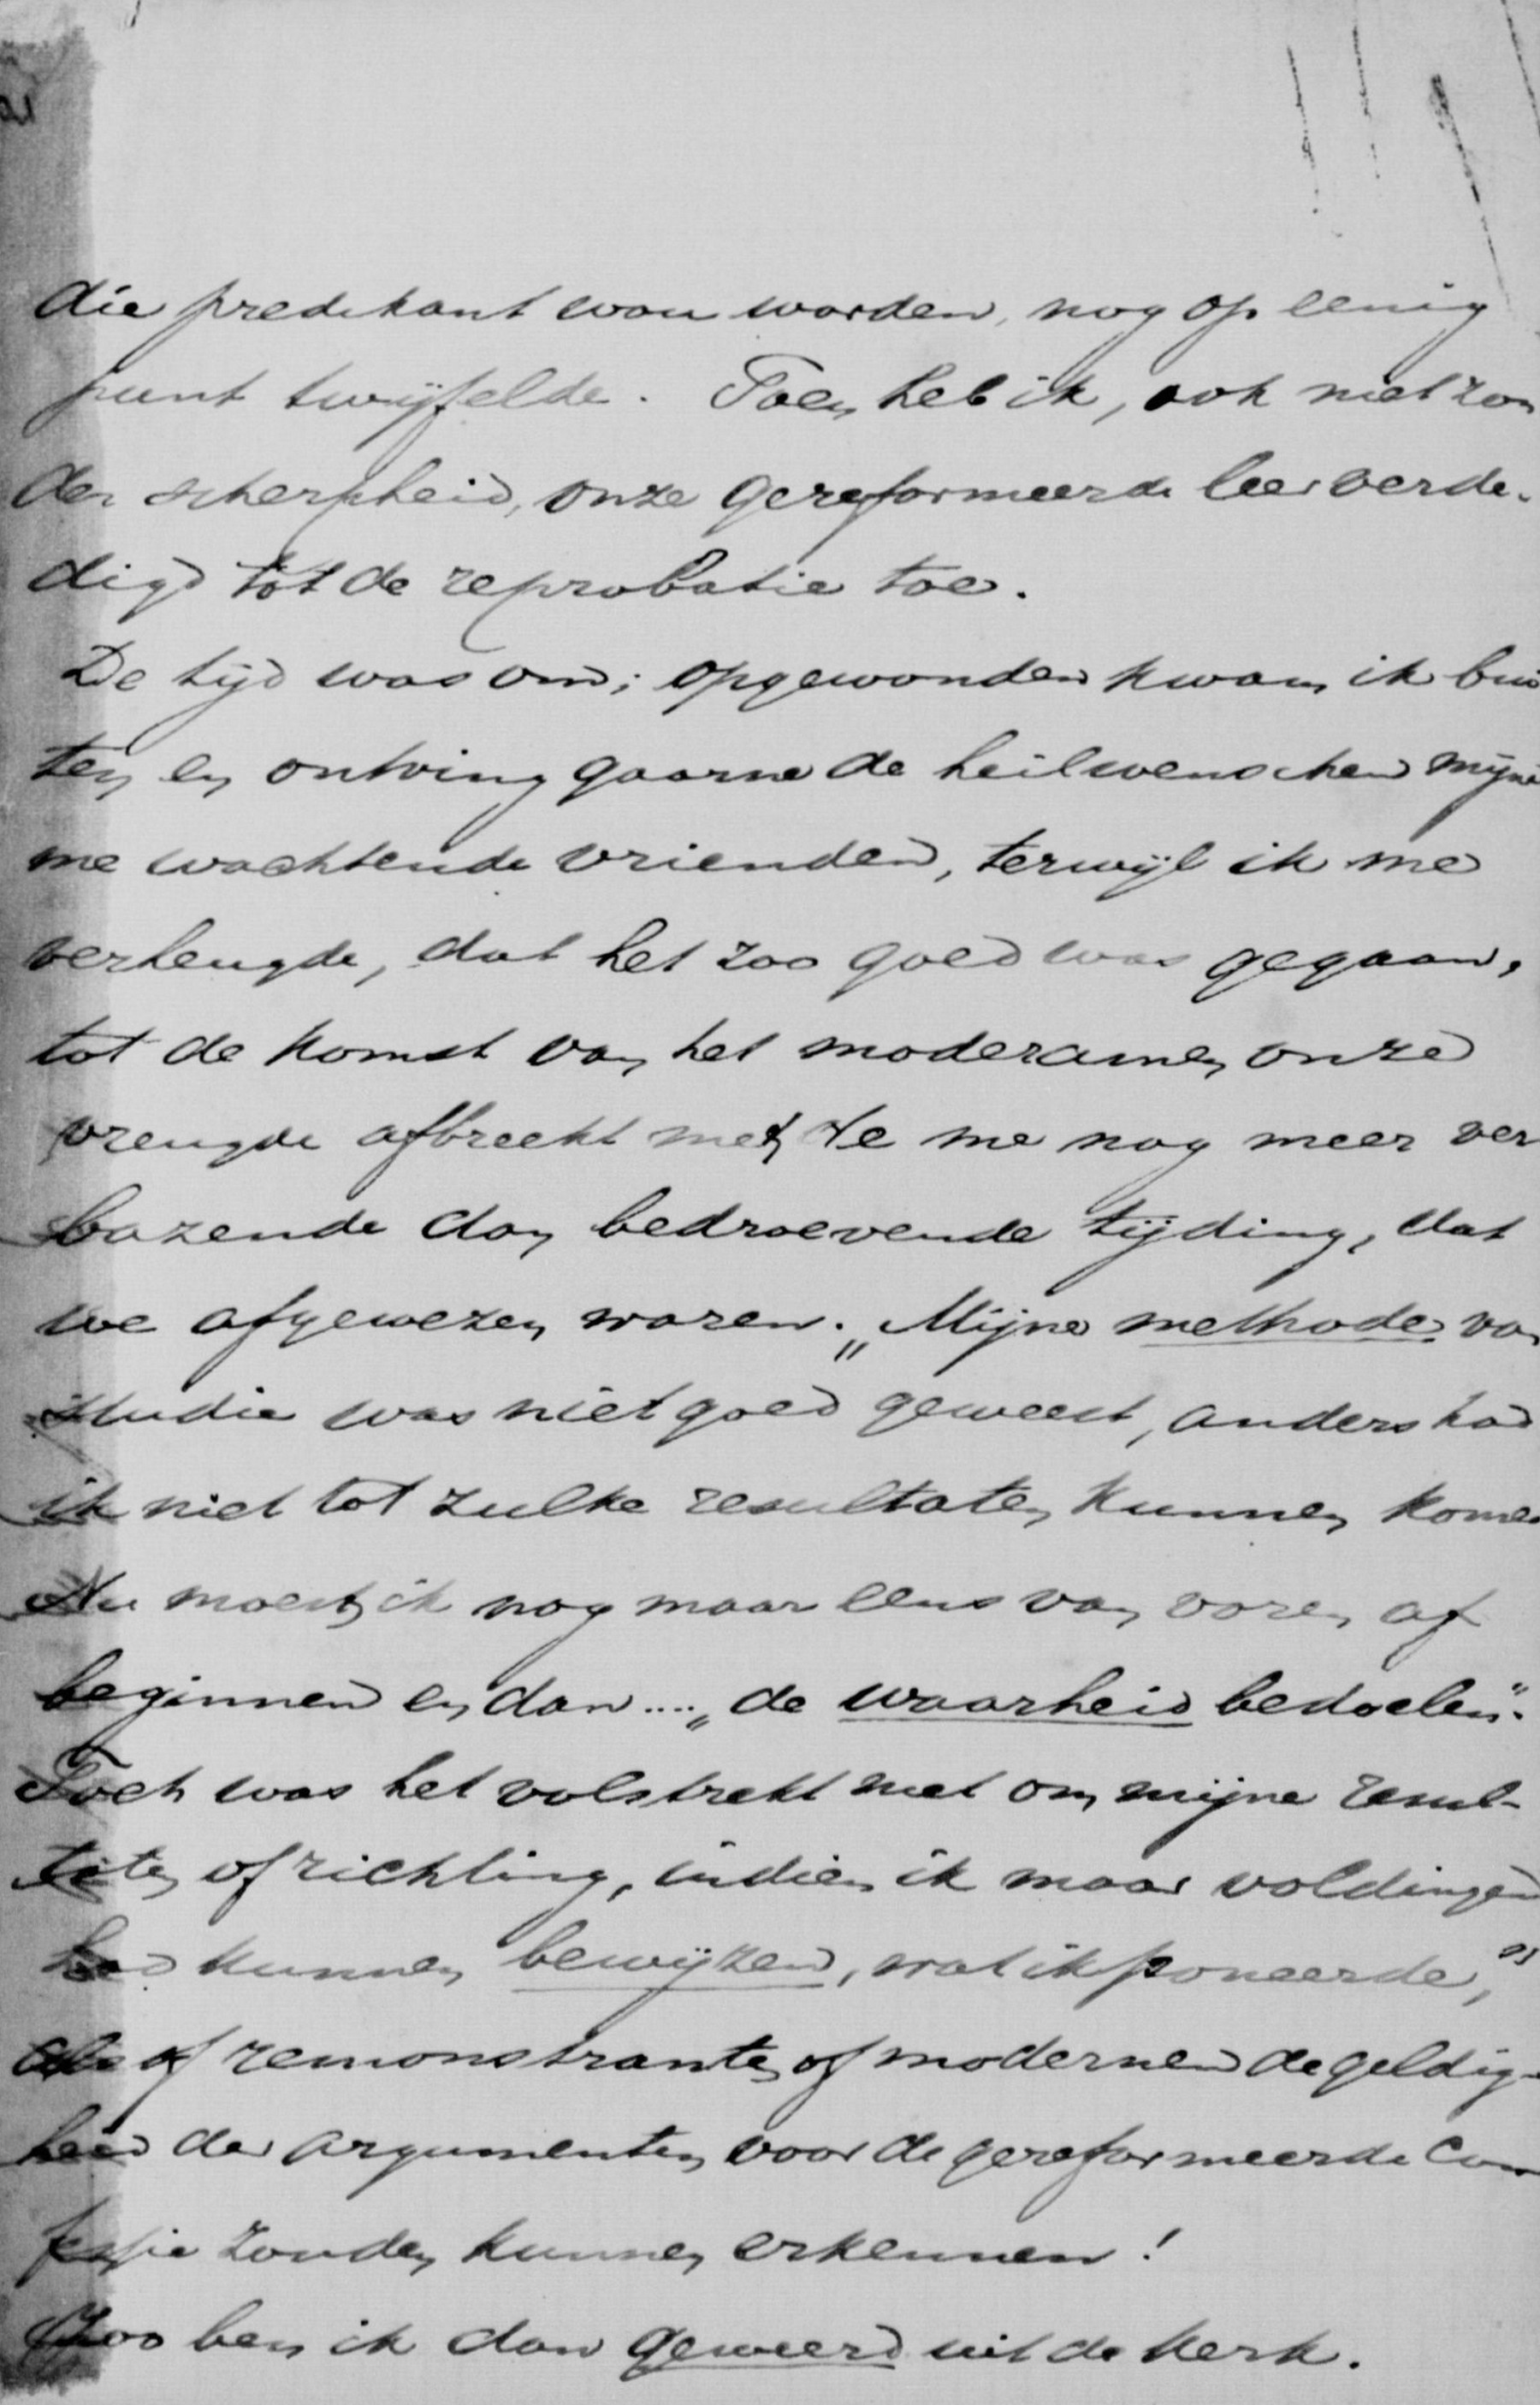 die predikant wou worden, nog op eenig
punt twijfelde. Toen heb ik, ook niet zon
der scherpheid, onze gereformeerde leer verde-
digd tot de reprobatie toe.
De tijd was om; opgewonden kwam ik bui
ten en ontving gaarne de heilwenschen mijner
me wachtende vrienden, terwijl ik me
verheugde, dat het zoo goed was gegaan,
tot de komst van het moderamen onze
vreugde afbreekt met de me nog meer ver
bazende dan bedroevende tijding, dat
we afgewezen waren. „Mijne methode van
studie was niet goed geweest, anders had
ik niet tot zulke resultaten kunnen komen
Nu moest ik nog maar eens van voren af
beginnen en dan .... „de waarheid bedoelen".
Toch was het volstrekt niet om mijne resul-
taten of richting, indien ik maar voldingend
had kunnen bewijzen, wat ik poneerde,"
als of remonstranten of modernen de geldig-
heid der argumenten voor de gereformeerde Con
fessie zouden kunnen erkennen!
Zoo ben ik dan geweerd uit de Kerk.